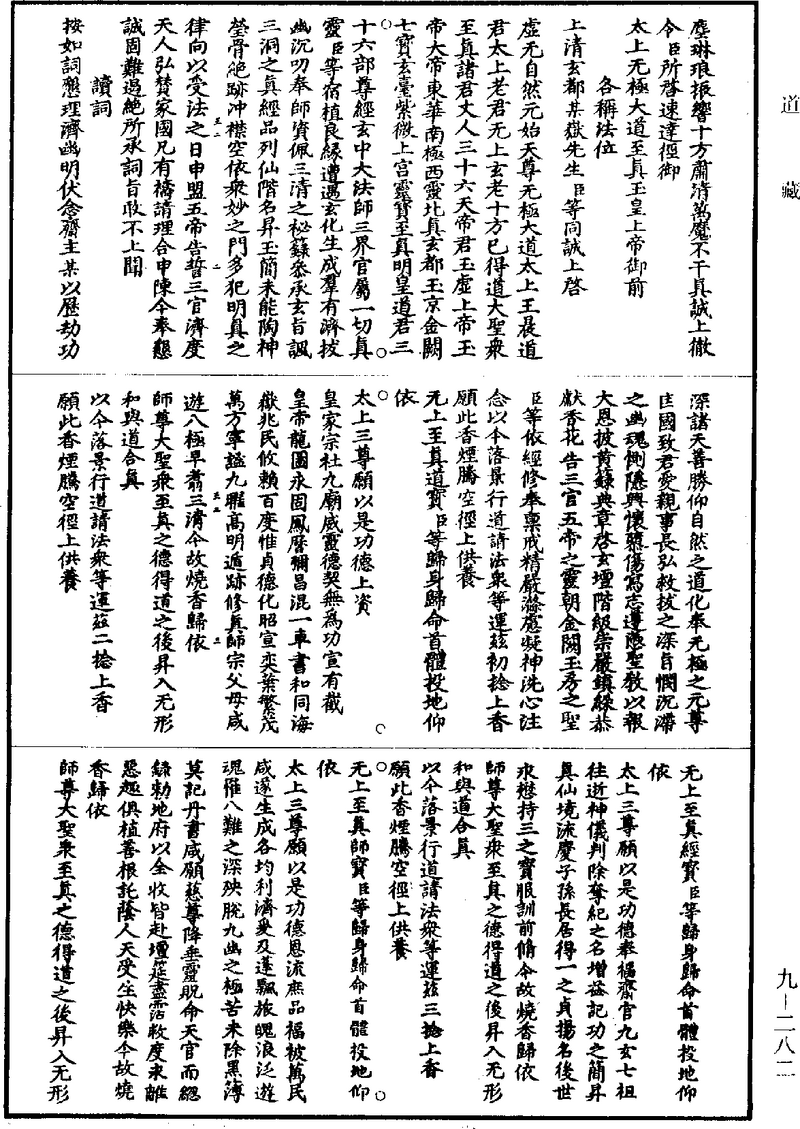 道藏
塵琳琅振響十方肅清萬魔不干真誠上徹
令臣所啓速達徑御
太上无極大道至真玉皇上帝御前
各稱法位
上清玄都某嶽先生臣等同誠上啓
虛无自然元始天尊无極大道太上玉晨道
君太上老君无上玄老十方已得道大聖衆
至真諸君丈人三十六天帝君玉虛上帝玉
帝大帝東華南極西靈北真玄都玉京金闕
七寶玄臺紫微上宮靈寶至真明皇道君三
十六部尊經玄中大法師三界官屬一切真
靈臣等宿植良緣遭遇玄化生成羣有濟拔
幽沉叨奉師資佩三清之秘籙恭承玄旨諷
三洞之真經品列仙階名昇玉簡未能陶神
瑩骨絶跡冲襟空依衆妙之門多犯明真之
律向以受法之日申盟五帝告誓三官濟度
天人弘賛家國凡有禱請理合申陳今奉懇
誠固難遏絶所承詞旨敢不上聞
讀詞
按如詞懇理濟幽明伏念齋主某以歷劫功
深諸天善勝仰自然之道化奉无極之元尊
匡國致君愛親事長弘救拔之深旨憫沉滯
之幽魂惻隱興懷慕傷寫志遵憑聖敎以報
大恩披黄籙典章啓玄壇階級崇嚴鎮綵恭
獻香花告三官五帝之靈朝金闕玉房之聖
臣等依經修奉禀戒精嚴滌慮凝神洗心注
念以今落景行道請法衆等運茲初捻上香
願此香煙騰空徑上供養
无上至真道寶臣等歸身歸命首體投地仰
依
太上三尊願以是功德上資
皇家宗社九廟威靈德契無爲功宣有截
皇帝龍圖永固鳳曆彌昌混一車書和同海
嶽兆民攸賴百度惟貞德化昭宣奕葉繁茂
萬方寧謐九聯高明遁跡修真師宗父母咸
遊八極早書三清今故燒香歸依
師尊大聖衆至真之德得道之後昇入无形
和與道合真
以今落景行道請法衆等運茲二捻上香
願此香煙騰空徑上供養
无上至真經寶臣等歸身歸命首體投地仰
依
太上三尊願以是功德奉福齋官九玄七祖
往逝神儀判除奪紀之名增益記功之簡昇
真仙境流慶子孫長居得一之貞揚名後世
永懋持三之寶服訓前脩今故燒香歸依
師尊大聖衆至真之德得道之後昇入无形
和與道合真
以今落景行道請法衆等運茲三捻上香
願此香煙騰空徑上供養
无上至真師寶臣等歸身歸命首體投地仰
依
太上三尊願以是功德恩流庶品福被萬民
咸遂生成各均利濟爰及蓬飄旅魄浪泛遊
魂罹八難之深殃脫九幽之極苦未除黑簿
莫記丹書咸願慈尊降垂靈貺命天官而緫
録勑地府以全收皆赴壇筵盡霑救度永離
惡趣俱植善根託蔭人天受生快樂今故燒
香歸依
師尊大聖衆至真之德得道之後昇入无形
九—二八二